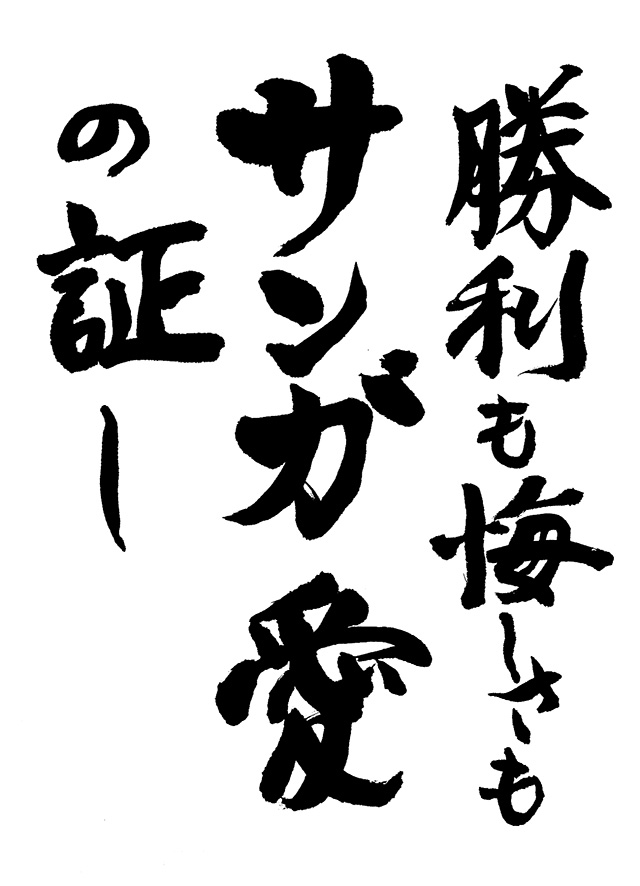 勝利も悔しさも
サンガ愛
の証ー